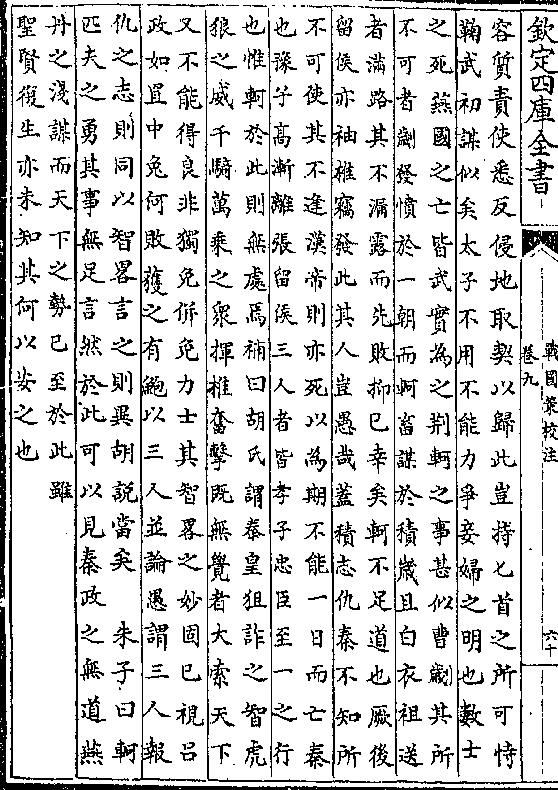 欽定四庫全書
戰國策校注
卷九
六十
容質責使悉反侵地取契以歸此豈持匕首之所可恃
鞠武初謀似矣太子不用不能力爭妾婦之明也數士
之死燕國之亡皆武實為之荆軻之事甚似曹劌其所
不可者劌發憤於一朝而軻畜謀於積歲且白衣祖送
者滿路其不漏露而先敗抑已幸矣軻不足道也厥後
留侯亦袖椎竊發此其人豈愚哉蓋積志仇秦不知所
不可使其不逢漢帝則亦死以為期不能一日而亡秦
也豫子高漸離張留侯三人者皆孝子忠臣至一之行
也惟軻於此則無處焉補曰胡氏謂秦皇狙詐之智虎
狼之威千騎萬乗之衆揮椎奮擊既無覺者大索天下
又不能得良非獨免併免力士其智畧之妙固已視呂
政如罝中兔何敗獲之有鮑以三人並論愚謂三人報
仇之志則同以智畧言之則異胡說當矣　朱子曰軻
匹夫之勇其事無足言然於此可以見秦政之無道燕
丹之淺謀而天下之勢已至於此雖
聖賢復生亦未知其何以安之也